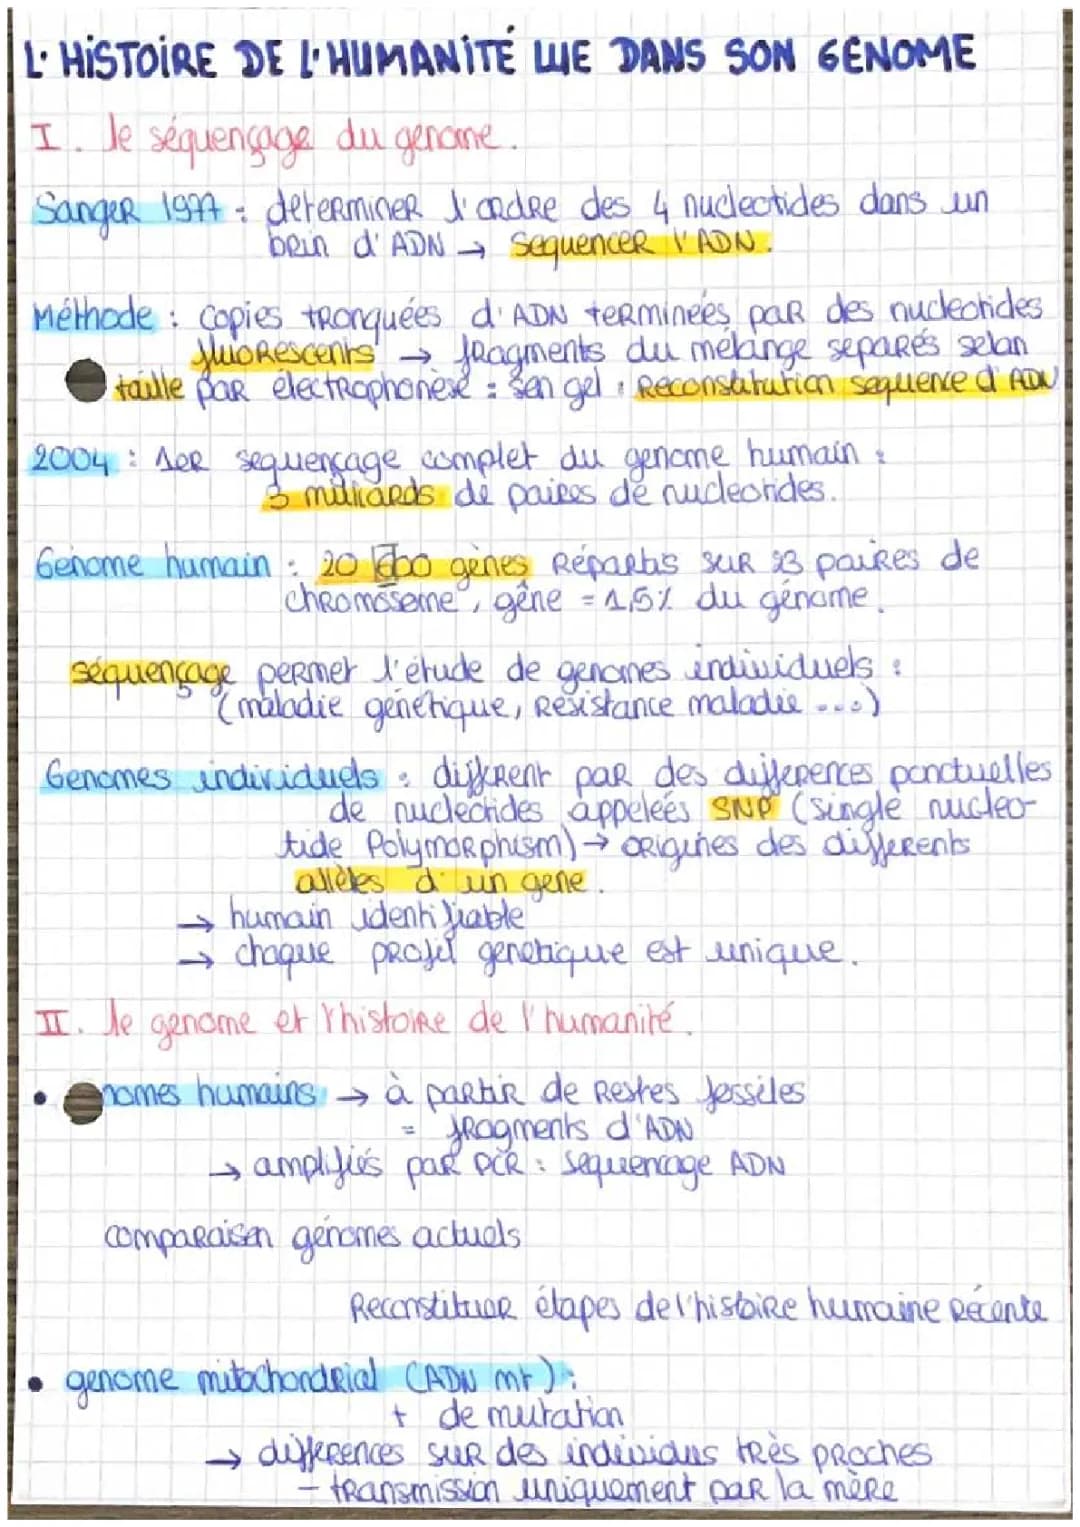 L'HISTOIRE DE L'HUMANITÉ LUE DANS SON GENOME
I. le séquençage du genome.
Sanger 1977 : determiner l'ordre des 4 nucleotides dans un
brin d'ADN → Sequencer l'ADN.
Méthode : copies tronquées d'ADN terminées par des nucleotides
fluorescents → fragments du mélange separés selon
taille par électrophorèse : sen gel : Reconstitution sequence d'ADN
2004 : 1er sequençage complet du genome humain :
3 milliards de paires de nucleotides.
Genome humain : 20 000 gènes Répartis sur 23 paires de
chromosome, gêne = 1,5% du génome.
séquençage permet l'étude de genomes individuels :
(maladie génétique, Résistance maladie ...)
Genomes individuels : diffèrent par des differences ponctuelles
de nucleotides appeleés SNP (single nucleo-
tide Polymorphism) → origines des differents
allèles d'un gene.
→ humain identifiable
→ chaque profil genetique est unique.
II. le genome et l'histoire de l'humanité.
• nomes humains → à partir de Restes fossiles
= fragments d'ADN
→ amplifiés par PCR : sequençage ADN
comparaison génomes actuels
Reconstituer étapes de l'histoire humaine Récente
• genome mitochondrial (ADN mt) :
+ de mutation
→ differences sur des individus très proches
- transmission uniquement par la mère